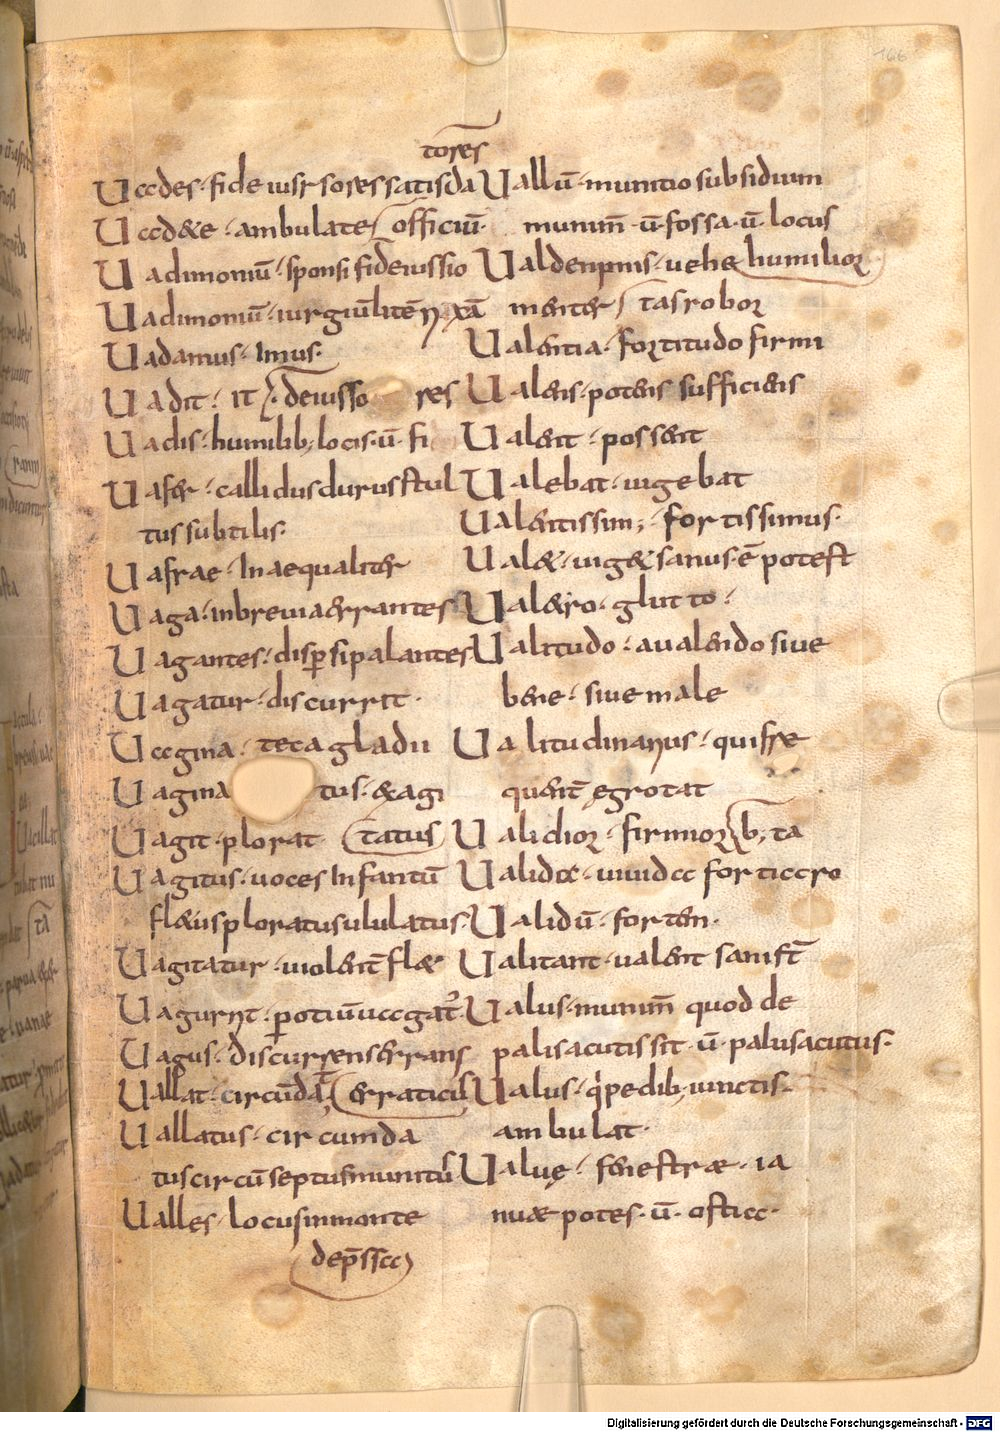 166
tores
Uades· fideiusrsoressatisda
Uad&e· ambulate officiū·
Uadimoniū· sponsi fideiussio
Uadimoniū· iurgiū
Uadamus· Imus·
Uadit· it deiusso res
Uadis· humilib; locis· ū· fi
Uafer· callidusdurusstul
tussubtilis·
Uafrae· Inaequaliter
Uaga· inbreviaerrantes
Uagantes· dispersipalantes
Uagatur· discurrit·
Uagina· tecagladii
Uagina tus· &agi
Uagit· plorat tatus
Uagitus· uoces Infantū
fletusploratusululatus·
Uagitatur· uiolent flae
Uagus· discurrenserrans
Uallat· circūda; erraticus
Uallatus· circumda
tuscircūseptusmunitus
Ualles· locusinmonte
dep̄ssa
Uallū· munitio subsidium
munim̄· ū· fossa· ū· locus
uehe humilior
menter tasrobor
Ualentia· fortitudo firmi
Ualens· potens sufficiens
Ualent· possent
Ualebat· uigebat
Ualentissim;· fortissimus·
Ual&· uig&sanus· ē potest
glutto·
Ualitudo· aualendo siue
bene· siue male
Ualitudinarius· quifre
quent̄ ęgrotat
Ualidior· firmior b; ta
Ualida· uiuida forticcro
Ualidū· fortem·
Ualitant· ualent
Ualus· munim̄ quod de
palisacutissit· ū· palusacutus·
Ualus· q̇ pedib; iunctis·
ambulat·
Ualuę· fenestrae· ia
nuae potes· ū· ostia·
Digitalisierung gefördert durch die Deutsche Forschungsgemeinschaft - DFG